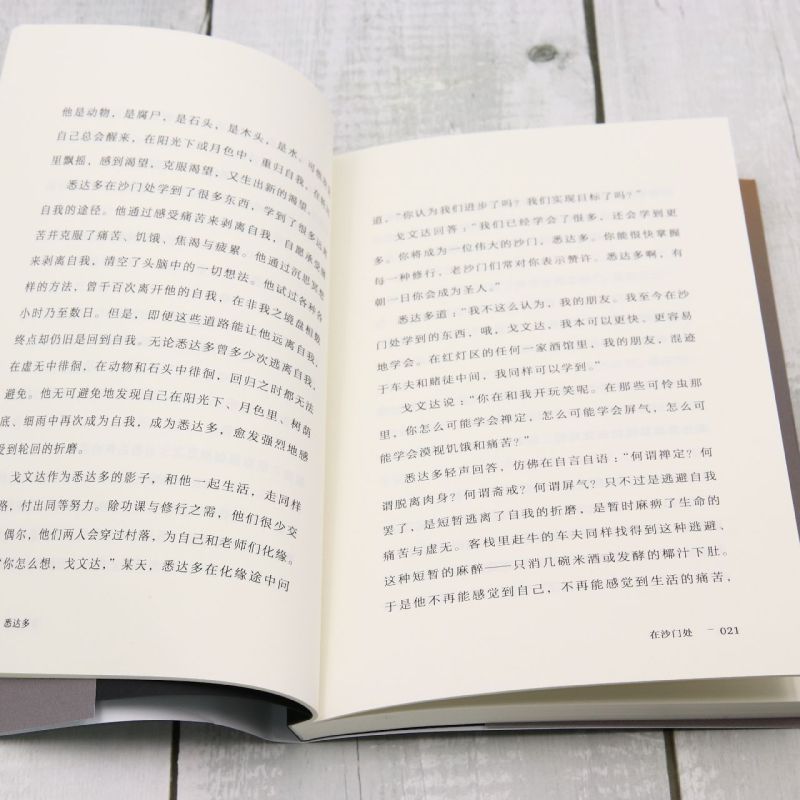 他是动物，是腐尸，是石头，是木头，是水，可他
自己总会醒来，在阳光下或月色中，重归自我，在
里飘摇，感到渴望，克服渴望，又生出新的渴望。
悉达多在沙门处学到了很多东西，学到了很多远离
自我的途径。他通过感受痛苦来剥离自我，自愿承受
苦并克服了痛苦、饥饿、焦渴与疲累。他通过沉思冥想
来剥离自我，清空了头脑中的一切想法。他试过各种各
样的方法，曾千百次离开他的自我，在非我之境盘桓数
小时乃至数日。但是，即使这些道路能让他远离自我，
终点却仍旧是回到自我。无论悉达多曾多少次逃离自我，
在虚无中徘徊，在动物和石头中徘徊，回归之时都无法
避免。他无可避免地发现自己在阳光下、月色里、树荫
底、细雨中再次成为自我，成为悉达多，愈发强烈地感
受到轮回的折磨。
戈文达作为悉达多的影子，和他一起生活，走同样
路，付出同等努力。除功课与修行之需，他们很少交
偶尔，他们两人会穿过村落，为自己和老师们化缘。
“你怎么想，戈文达，”某天，悉达多在化缘途中问
悉达多
道，“你认为我们进步了吗？我们实现目标了吗？”
戈文达回答：“我们已经学会了很多，还会学到更
多。你将成为一位伟大的沙门，悉达多。你能很快掌握
每一种修行，老沙门们常对你表示赞许。悉达多啊，有
朝一日你会成为圣人。”
悉达多道：“我不这么认为，我的朋友。我至今在沙
门处学到的东西，哦，戈文达，我本可以更快、更容易
地学会。在红灯区的任何一家酒馆里，我的朋友，混迹
于车夫和赌徒中间，我同样可以学到。”
戈文达说：“你在和我开玩笑呢。在那些可怜虫那
里，你怎么可能学会禅定，怎么可能学会屏气，怎么可
能学会漠视饥饿和痛苦？”
悉达多轻声回答，仿佛在自言自语：“何谓禅定？何
谓脱离肉身？何谓斋戒？何谓屏气？只不过是逃避自我
罢了，是短暂逃离了自我的折磨，是暂时麻痹了生命的
痛苦与虚无。客栈里赶牛的车夫同样找得到这种逃避、
这种短暂的麻醉——只消几碗米酒或发酵的椰汁下肚。
于是他不再能感觉到自己，不再能感觉到生活的痛苦，
在沙门处 — 021